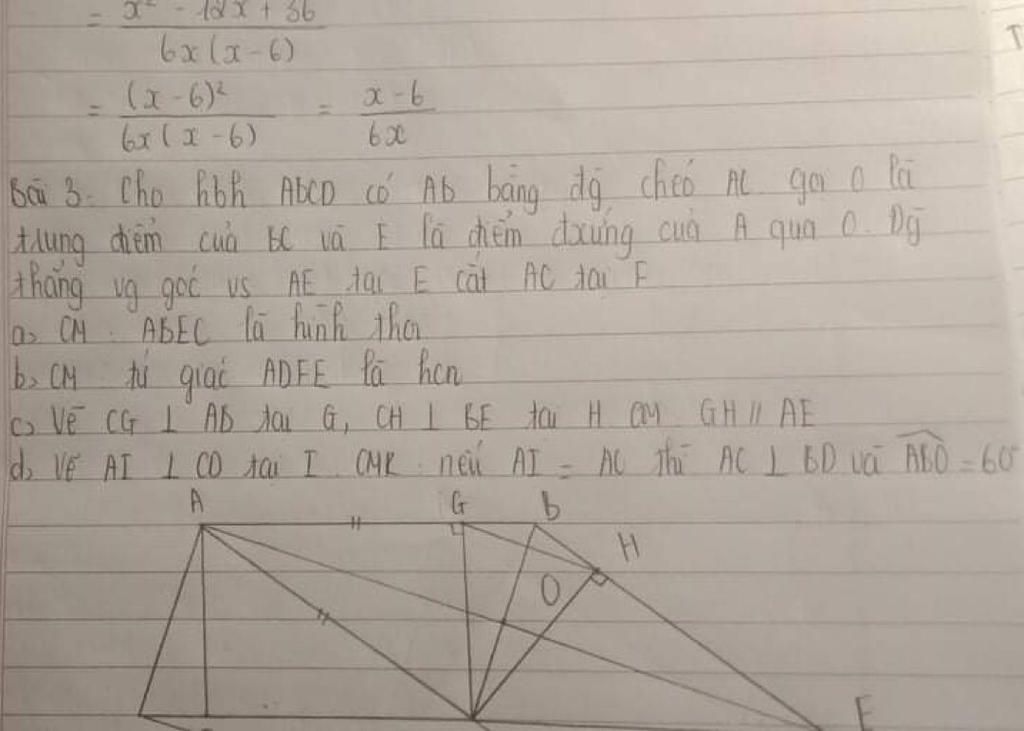 = x² - 12x + 36 / 6x(x-6)
= (x-6)² / 6x(x-6) = x-6 / 6x
Bài 3. Cho hbh ABCD có AB bằng đg chéo AC gọi O là
trung điểm của BC và E là điểm đxứng của A qua O. Đg
thẳng vg góc vs AE tại E cắt AC tại F
a, CM ABEC là hình thoi
b, CM tứ giác ADFE là hcn
c, Vẽ CG ⊥ AB tại G, CH ⊥ BE tại H CM GH // AE
d, Vẽ AI ⊥ CD tại I. CMR nếu AI = AC thì AC ⊥ BD và ABO = 60
A G B
H
O
E